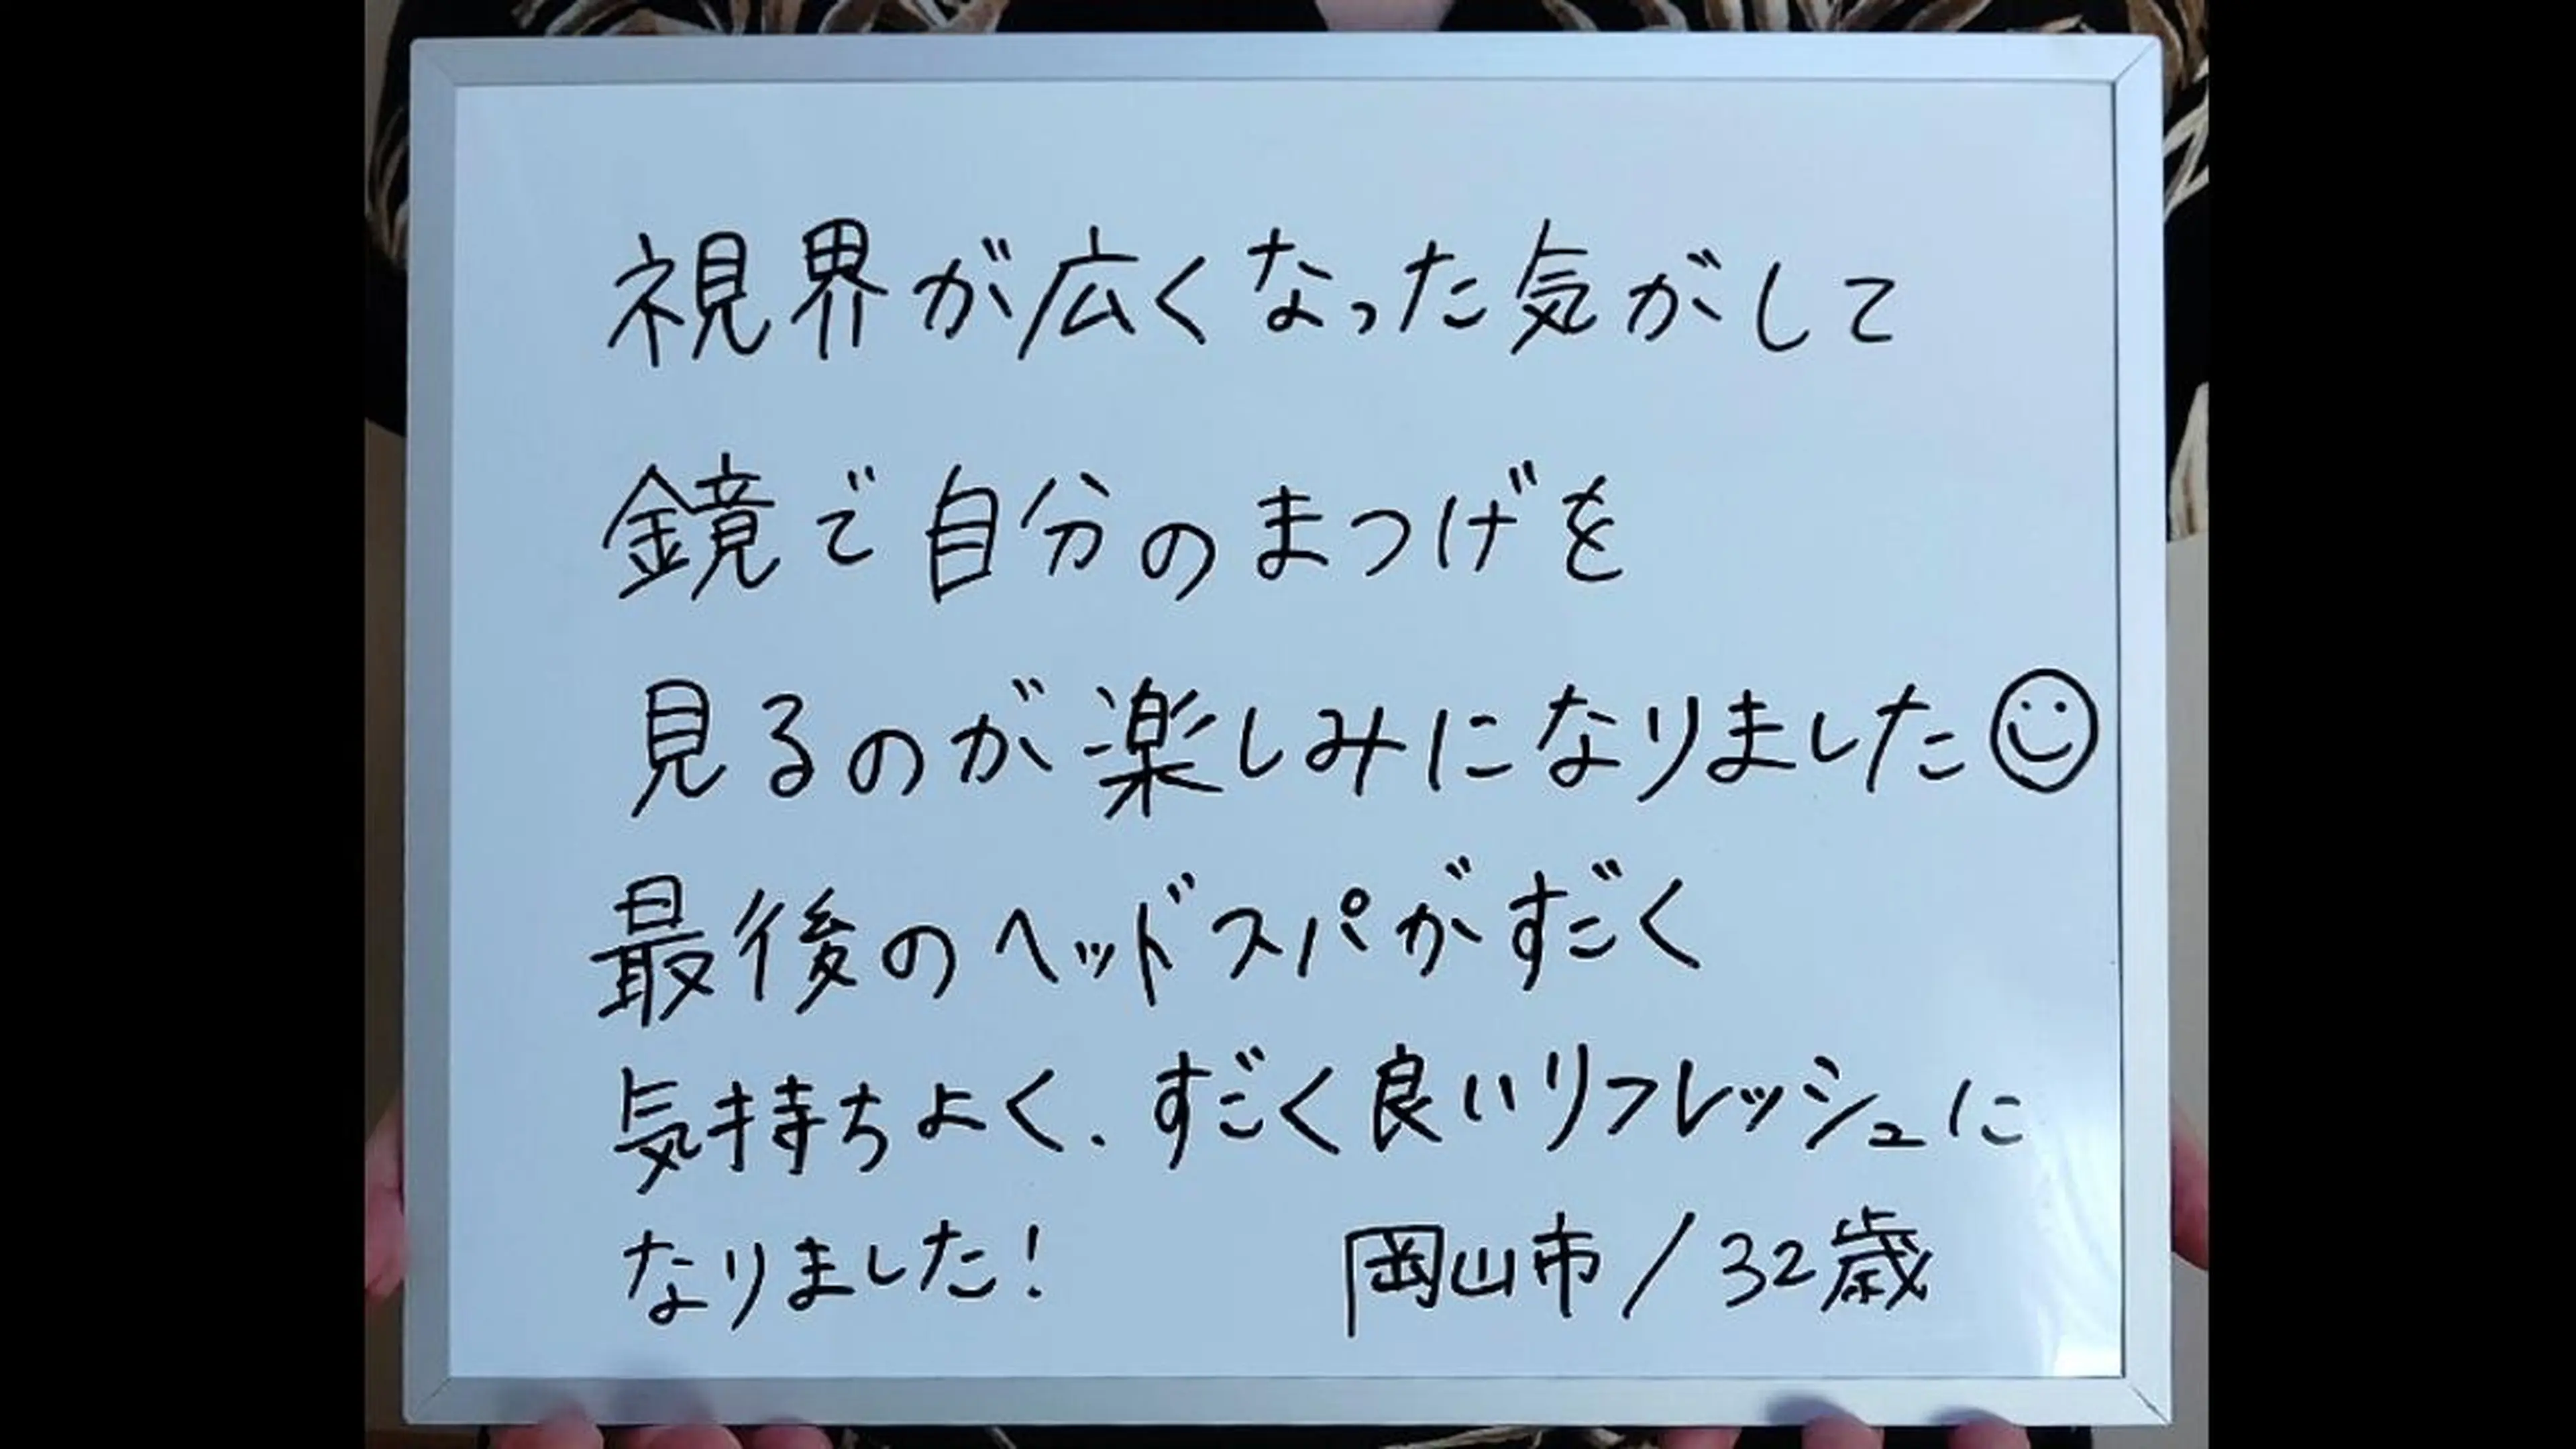 視界が広くなった気がして
鏡で自分のまつげを
見るのが楽しみになりました☺
最後のヘッドスパがすごく
気持ちよく、すごく良いリフレッシュに
なりました！ 岡山市/32歳